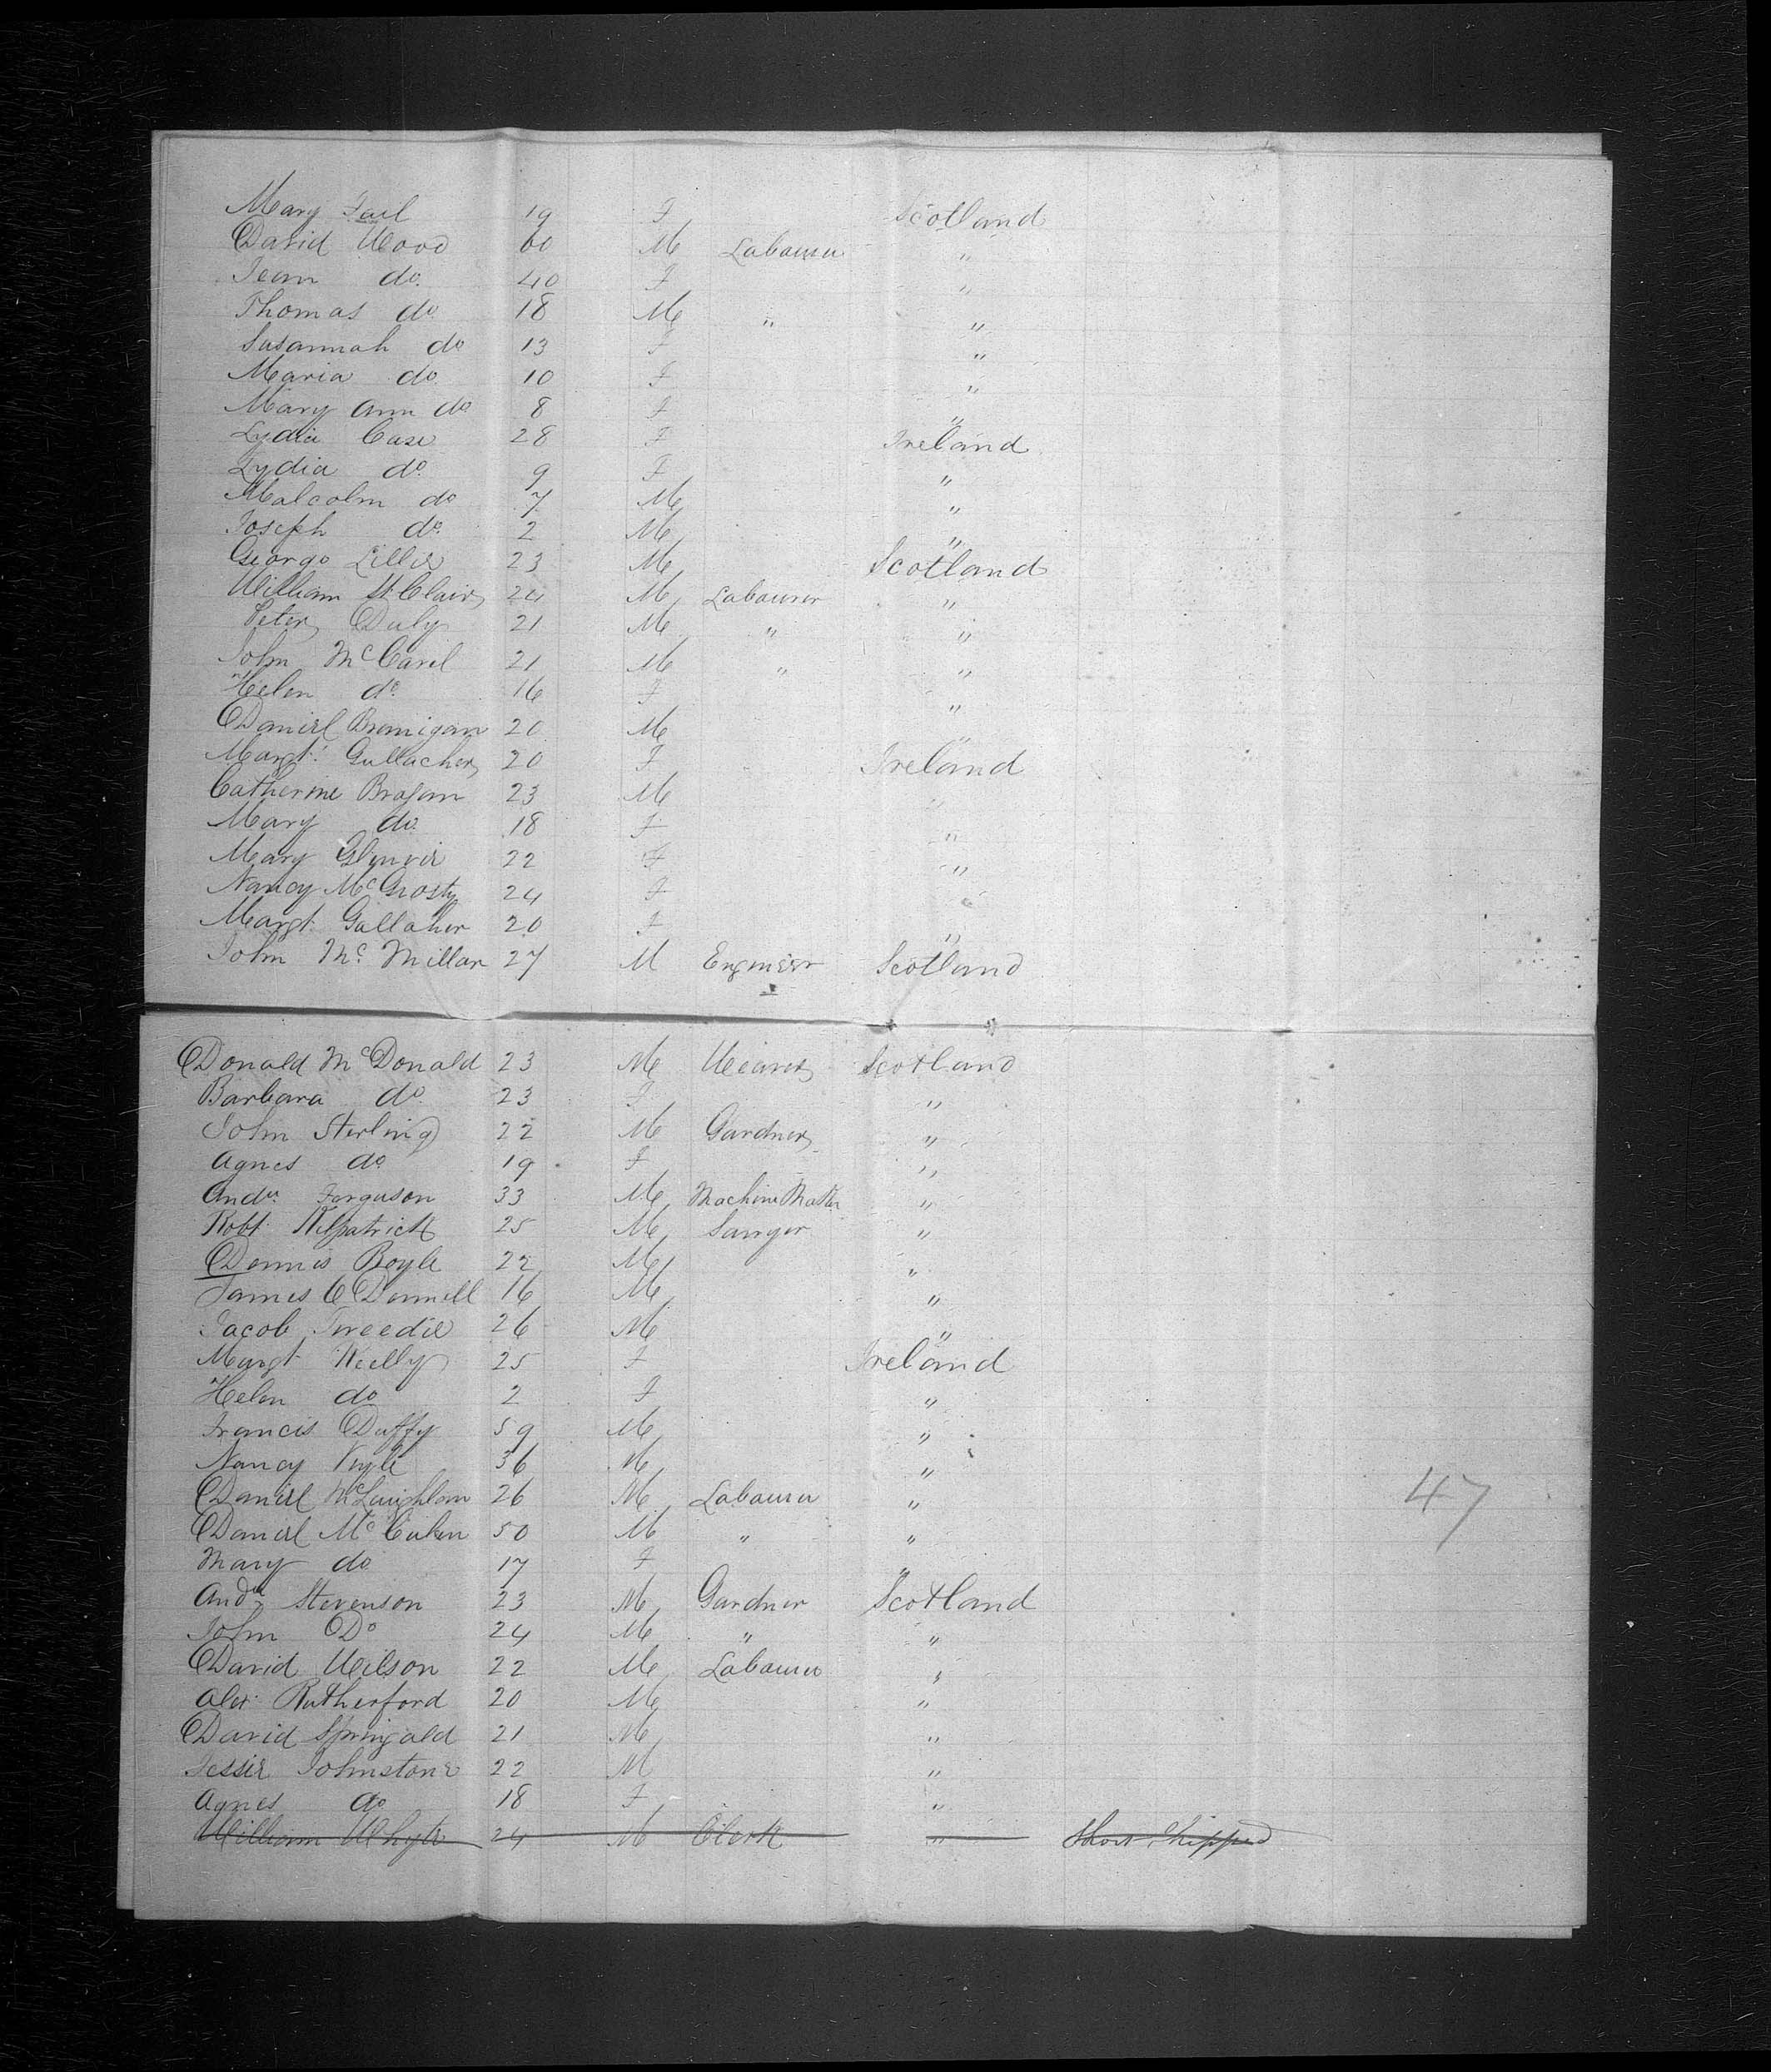 Mary Fail 19 F Scotland
David Wood 60 M Labourer "
Jean do. 40 F "
Thomas do 18 M " "
Susannah do 13 F "
Maria do. 10 F "
Mary Ann do 8 F "
Lydia Case 28 F Ireland
Lydia do. 9 F "
Malcolm do 7 M "
Joseph do. 2 M "
George Lillie 23 M Scotland
William St Clair 24 M Labourer "
Peter Duly 21 M " "
John McCaril 21 M " "
Helen do. 16 F "
Daniel Branigan 20 M "
Margt. Gallacher 20 F Ireland
Catherine Brogan 23 M "
Mary do. 18 F "
Mary 22 F "
Nancy McGrosty 24 F "
Margt Gallaher 20 F "
John Mc Millan 27 M Engineer Scotland
Donald McDonald 23 M Weaver Scotland
Barbara do. 23 F "
John Sterling 22 M Gardner "
Agnes do 19 F "
Andw Ferguson 33 M Machine Master "
Robt Kilpatrick 25 M Sawyer "
Dennis Boyle 22 M "
James O Donnell 16 M "
Jacob Tweedie 26 M "
Margt Kelly 25 F Ireland
Helen do 2 F "
Francis Duffy 59 M "
Nancy 36 M "
Daniel McLaughlan 26 M Labourer "
Daniel Mc 50 M " "
Mary do 17 F "
Andw Stevenson 23 M Gardner Scotland
John Do 24 M " "
David Wilson 22 M Labourer "
Alex Rutherford 20 M "
David Springald 21 M "
Jessie Johnstone 22 M "
Agnes do 18 F "
William Whyte 24 M Clerk " Short Shipped
47